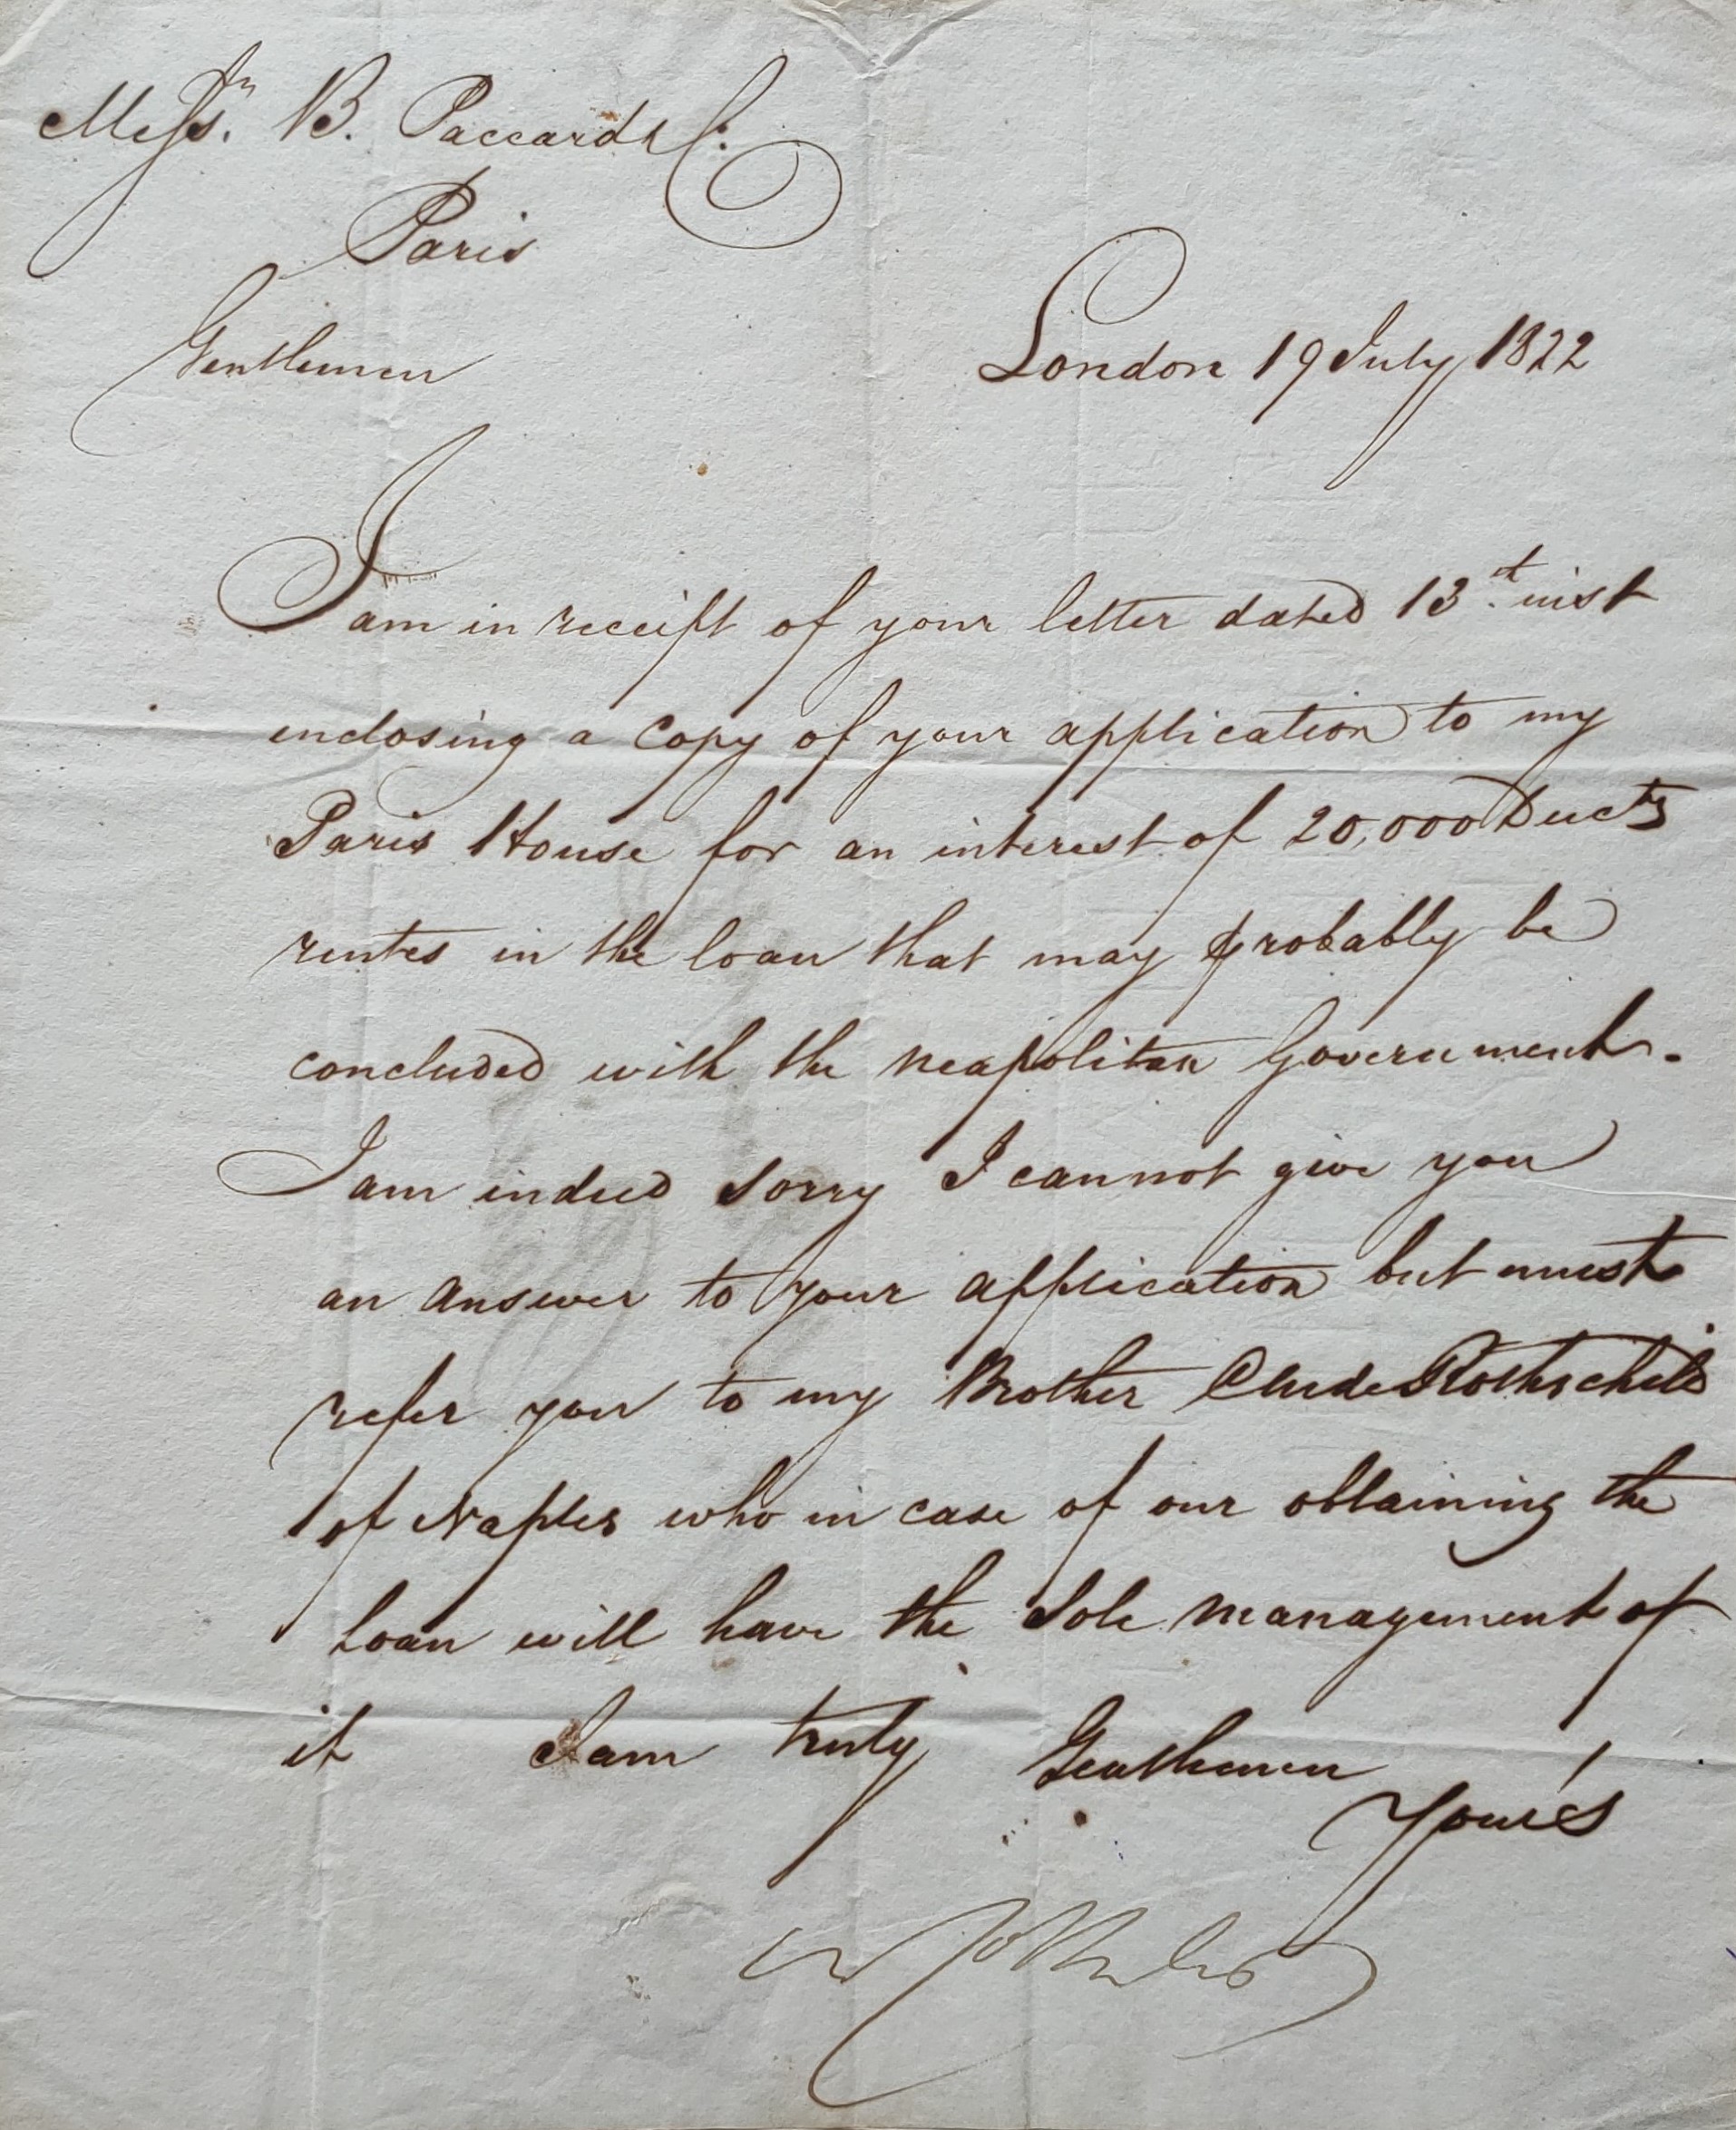 Messrs. B. Paccard & C.
Paris
Gentlemen
London 19 July 1822
I am in receipt of your letter dated 13.t inst
enclosing a Copy of your application to my
Paris House for an interest of 20,000 Ducts
rentes in the loan that may probably be
concluded with the neapolitan Government.
I am indeed sorry I cannot give you
an answer to your application but must
refer you to my Brother Rothschild
of Naples who in case of our obtaining the
loan will have the Sole management of
it I am truly Gentlemen
Yours